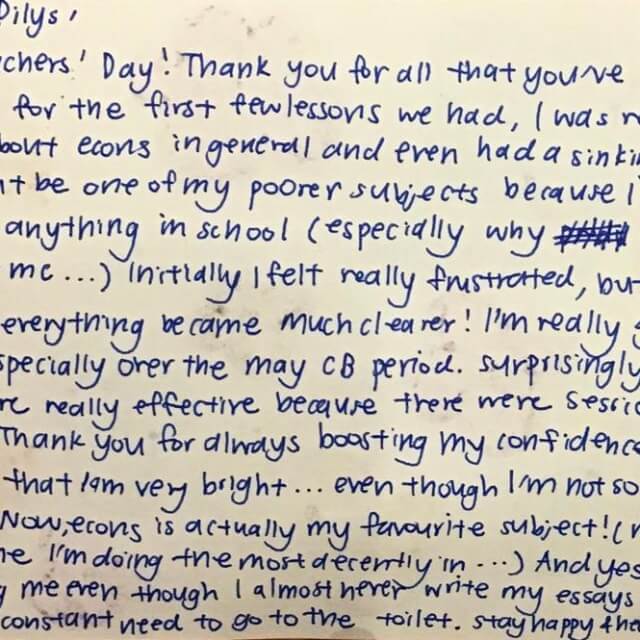 Dilys,
chers' Day! Thank you for all that you've
for the first few lessons we had, I was
bout econs in general and even had a
be one of my poorer subjects because I
anything in school (especially why
mc ...) Initially I felt really frustrated, but
everything became much clearer! I'm really
specially over the may CB period. surprisingly
re really effective because there were
Thank you for always boosting my confidence
that I am very bright ... even though I'm not so
Now, econs is actually my favourite subject! (
I'm doing the most decently in ...) And yes
me even though I almost never write my essays
constant need to go to the toilet. stay happy